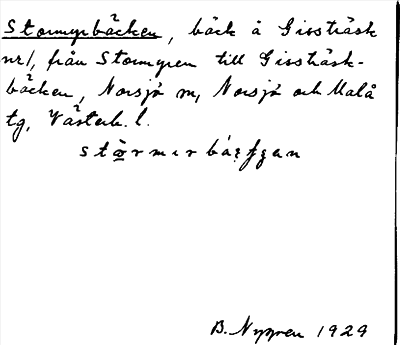 Stormyrbäcken, bäck å Gissträsk
nr 1, från Stormyren till Gissträsk-
bäcken, Norsjö sn, Norsjö och Malå
tg, Västerb. l.
B. Nygren 1929